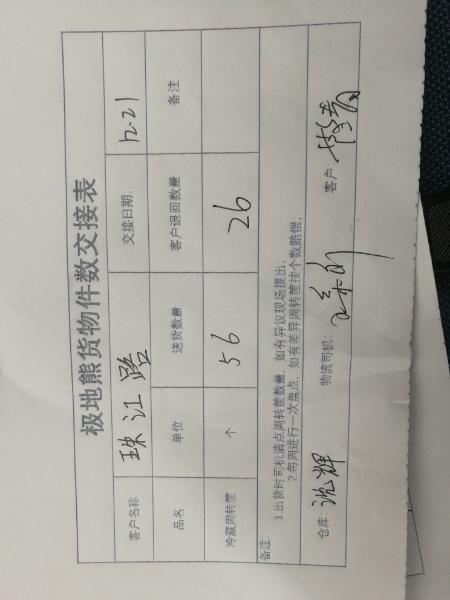 极地熊货物件数交接表
客户名称 珠江路 交接日期: 12.21
品名 单位 送货数量 客户退回数量 备注
冷藏周转筐 个 56 26
备注: 1.出货时司机清点周转筐数量,如有异议现场提出;
2.每周进行一次盘点,如有差异周转筐按个数赔偿;
仓库: 沈辉 物流司机: 客户: